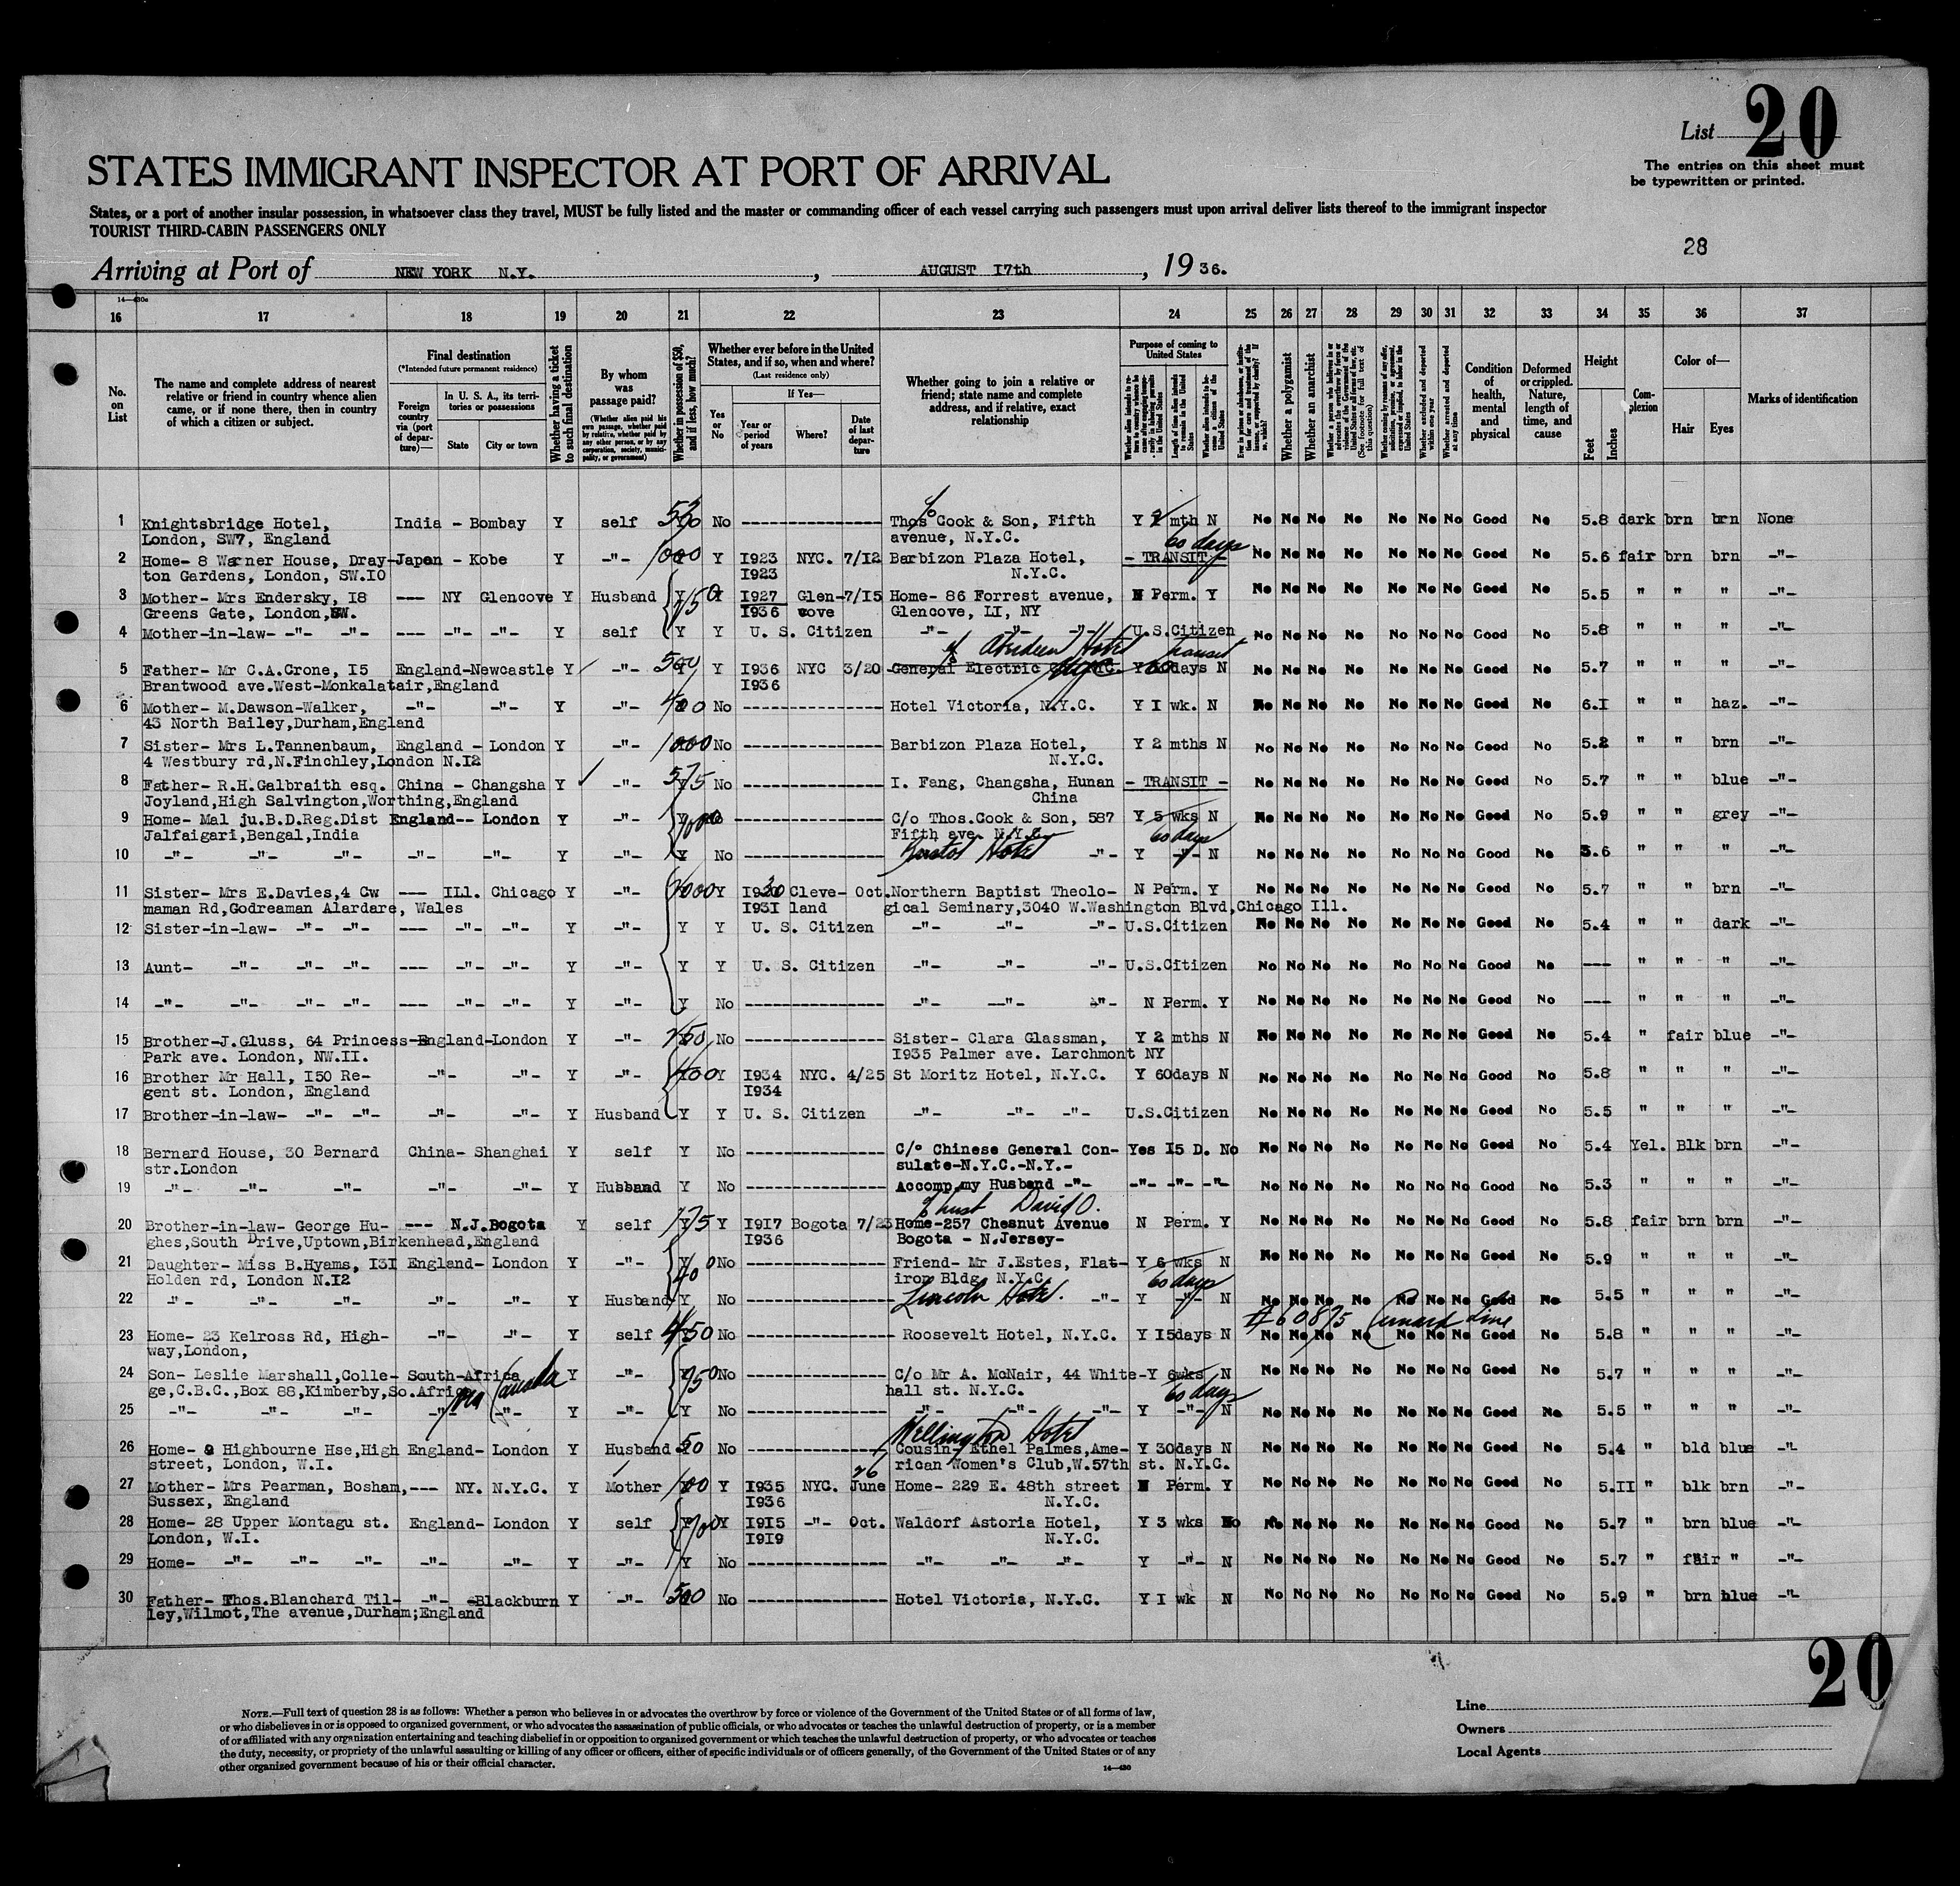 List 20
STATES IMMIGRANT INSPECTOR AT PORT OF ARRIVAL
The entries on this sheet must
be typewritten or printed.
States, or a port of another insular possession, in whatsoever class they travel, MUST be fully listed and the master or commanding officer of each vessel carrying such passengers must upon arrival deliver lists thereof to the immigrant inspector
TOURIST THIRD-CABIN PASSENGERS ONLY
28
Arriving at Port of NEW YORK N.Y. , AUGUST 17th , 1936.
16 17 18 19 20 21 22 23 24 25 26 27 28 29 30 31 32 33 34 35 36 37
No. on List
The name and complete address of nearest relative or friend in country whence alien came, or if none there, then in country of which a citizen or subject.
Final destination
(*Intended future permanent residence)
Foreign country via (port of departure)—
In U. S. A., its territories or possessions
State City or town
Whether having a ticket to such final destination
By whom was passage paid?
(Whether alien paid his own passage, whether paid by relative, whether paid by any other person, or by any corporation, society, municipality, or government)
Whether in possession of $50, and if less, how much?
Whether ever before in the United States, and if so, when and where?
(Last residence only)
Yes or No
If Yes—
Year or period of years Where? Date of last departure
Whether going to join a relative or friend; state name and complete address, and if relative, exact relationship
Purpose of coming to United States
Whether a polygamist
Whether an anarchist
Condition of health, mental and physical
Deformed or crippled. Nature, length of time, and cause
Height
Feet Inches
Complexion
Color of—
Hair Eyes
Marks of identification
1 Knightsbridge Hotel, India - Bombay Y self No Thos Cook & Son, Fifth Y mth N No No No No No No No Good No 5.8 dark brn brn None
London, SW7, England avenue, N.Y.C. 60 days
2 Home- 8 Warner House, Dray- Japan - Kobe Y -"- 1000 Y I923 NYC. 7/I2 Barbizon Plaza Hotel, - TRANSIT - No No No No No No No Good No 5.6 fair brn brn -"-
ton Gardens, London, SW.IO I923 N.Y.C.
3 Mother- Mrs Endersky, I8 --- NY Glencove Y Husband Y I927 Glen- 7/I5 Home- 86 Forrest avenue, N Perm. Y No No No No No No No Good No 5.5 " " " -"-
Greens Gate, London,SW. I936 cove Glencove, LI, NY
4 Mother-in-law- -"- -"- --- -"- -"- Y self Y Y U. S. Citizen -"- -"- -"- U.S.Citizen No No No No No No No Good No 5.8 " " " -"-
Aberdeen Hotel transit
5 Father- Mr C.A.Crone, I5 England-Newcastle Y -"- 500 Y I936 NYC 3/20 General Electric N.Y.C. Y 60days N No No No No No No No Good No 5.7 " " " -"-
Brantwood ave.West-Monkalatair,England I936
6 Mother- M.Dawson-Walker, -"- -"- Y -"- 400 No Hotel Victoria, N.Y.C. Y I wk. N No No No No No No No Good No 6.I " " haz. -"-
43 North Bailey,Durham,England
7 Sister- Mrs L.Tannenbaum, England - London Y -"- 1000 No Barbizon Plaza Hotel, Y 2 mths N No No No No No No No Good No 5.2 " " brn -"-
4 Westbury rd,N.Finchley,London N.I2 N.Y.C.
8 Father- R.H.Galbraith esq. China - Changsha Y -"- 575 No I. Fang, Changsha, Hunan - TRANSIT - No No No No No No No Good No 5.7 " " blue -"-
Joyland,High Salvington,Worthing,England China
9 Home- Mal ju.B.D.Reg.Dist England-- London Y -"- C/o Thos.Cook & Son, 587 Y 5 wks N No No No No No No No Good No 5.9 " " grey -"-
Jalfaigari,Bengal,India Fifth ave N.Y.C. 60 days
10 -"- -"- -"- -"- -"- Y -"- Y No Bristol Hotel -"- Y -"- N No No No No No No No Good No 5.6 " " " -"-
11 Sister- Mrs E.Davies,4 Gw --- Ill. Chicago Y -"- Y Cleve- Oct. Northern Baptist Theolo- N Perm. Y No No No No No No No Good No 5.7 " " brn -"-
maman Rd,Godreaman Alardare, Wales I93I land gical Seminary,3040 W.Washington Blvd,Chicago Ill.
12 Sister-in-law- -"- -"- --- -"- -"- Y -"- Y Y U. S. Citizen -"- -"- -"- U.S.Citizen No No No No No No No Good No 5.4 " " dark -"-
13 Aunt- -"- -"- -"- --- -"- -"- Y -"- Y Y U. S. Citizen -"- -"- -"- U.S.Citizen No No No No No No No Good No --- " " " -"-
14 -"- -"- -"- -"- --- -"- -"- Y -"- Y No -"- -"- -"- N Perm. Y No No No No No No No Good No --- " " " -"-
15 Brother-J.Gluss, 64 Princess- England-London Y -"- No Sister- Clara Glassman, Y 2 mths N No No No No No No No Good No 5.4 " fair blue -"-
Park ave. London, NW.II. I935 Palmer ave. Larchmont NY
16 Brother Mr Hall, I50 Re- -"- -"- Y -"- 400 Y I934 NYC. 4/25 St Moritz Hotel, N.Y.C. Y 60days N No No No No No No No Good No 5.8 " " " -"-
gent st. London, England I934
17 Brother-in-law- -"- -"- -"- -"- Y Husband Y Y U. S. Citizen -"- -"- -"- U.S.Citizen No No No No No No No Good No 5.5 " " " -"-
18 Bernard House, 30 Bernard China- Shanghai Y self Y No C/o Chinese General Con- Yes I5 D. No No No No No No No No Good No 5.4 Yel. Blk brn -"-
str.London sulate-N.Y.C.-N.Y.-
19 -"- -"- -"- -"- -"- Y Husband Y No Accomp.my Husband -"- -"- -"- -"- No No No No No No No Good No 5.3 " " " -"-
David O.
20 Brother-in-law- George Hu- --- N.J.Bogota Y self 175 Y I9I7 Bogota 7/23 Home-257 Chesnut Avenue N Perm. Y No No No No No No No Good No 5.8 fair brn brn -"-
ghes,South Drive,Uptown,Birkenhead,England I936 Bogota - N.Jersey-
21 Daughter- Miss B.Hyams, I3I England- London Y -"- Y No Friend- Mr J.Estes, Flat- Y 6 wks N No No No No No No No Good No 5.9 " " " -"-
Holden rd, London N.I2 iron Bldg N.Y.C. 60 days
22 -"- -"- -"- -"- -"- Y Husband Y No Lincoln Hotel. -"- Y -"- N No No No No No No No Good No 5.5 " " " -"-
#60875 Cunard Line
23 Home- 23 Kelross Rd, High- -"- -"- Y self 450 No Roosevelt Hotel, N.Y.C. Y I5days N No No No No No No No Good No 5.8 " " " -"-
way,London,
24 Son- Leslie Marshall,Colle- South-Africa Y -"- No C/o Mr A. McNair, 44 White- Y 6wks N No No No No No No No Good No 5.7 " " " -"-
ge,C.B.C.,Box 88,Kimberby,So.Africa via Canada hall st. N.Y.C. 60 days
25 -"- -"- -"- -"- -"- Y -"- Y No -"- -"- -"- Y -"- N No No No No No No No Good No 5.5 " " " -"-
Wellington Hotel
26 Home- 8 Highbourne Hse,High England- London Y Husband 50 No Cousin- Ethel Palmes,Ame- Y 30days N No No No No No No No Good No 5.4 " bld blue -"-
street, London, W.I. rican Women's Club,W.57th st. N.Y.C.
26
27 Mother- Mrs Pearman, Bosham, --- NY. N.Y.C. Y Mother 100 Y I935 NYC. June Home- 229 E. 48th street N Perm. Y No No No No No No No Good No 5.II " blk brn -"-
Sussex, England I936 N.Y.C.
28 Home- 28 Upper Montagu st. England- London Y self Y I9I5 -"- Oct. Waldorf Astoria Hotel, Y 3 wks No No No No No No No No Good No 5.7 " brn blue -"-
London, W.I. I9I9 N.Y.C.
29 Home- -"- -"- -"- -"- -"- Y -"- Y No -"- -"- -"- Y -"- N No No No No No No No Good No 5.7 " fair " -"-
30 Father- Thos.Blanchard Til- -"- -Blackburn Y -"- 500 No Hotel Victoria, N.Y.C. Y I wk N No No No No No No No Good No 5.9 " brn blue -"-
ley,Wilmot,The avenue,Durham;England
20
NOTE.—Full text of question 28 is as follows: Whether a person who believes in or advocates the overthrow by force or violence of the Government of the United States or of all forms of law,
or who disbelieves in or is opposed to organized government, or who advocates the assassination of public officials, or who advocates or teaches the unlawful destruction of property, or is a member
of or affiliated with any organization entertaining and teaching disbelief in or opposition to organized government or which teaches the unlawful destruction of property, or who advocates or teaches
the duty, necessity, or propriety of the unlawful assaulting or killing of any officer or officers, either of specific individuals or of officers generally, of the Government of the United States or of any
other organized government because of his or their official character.
14—430
Line
Owners
Local Agents